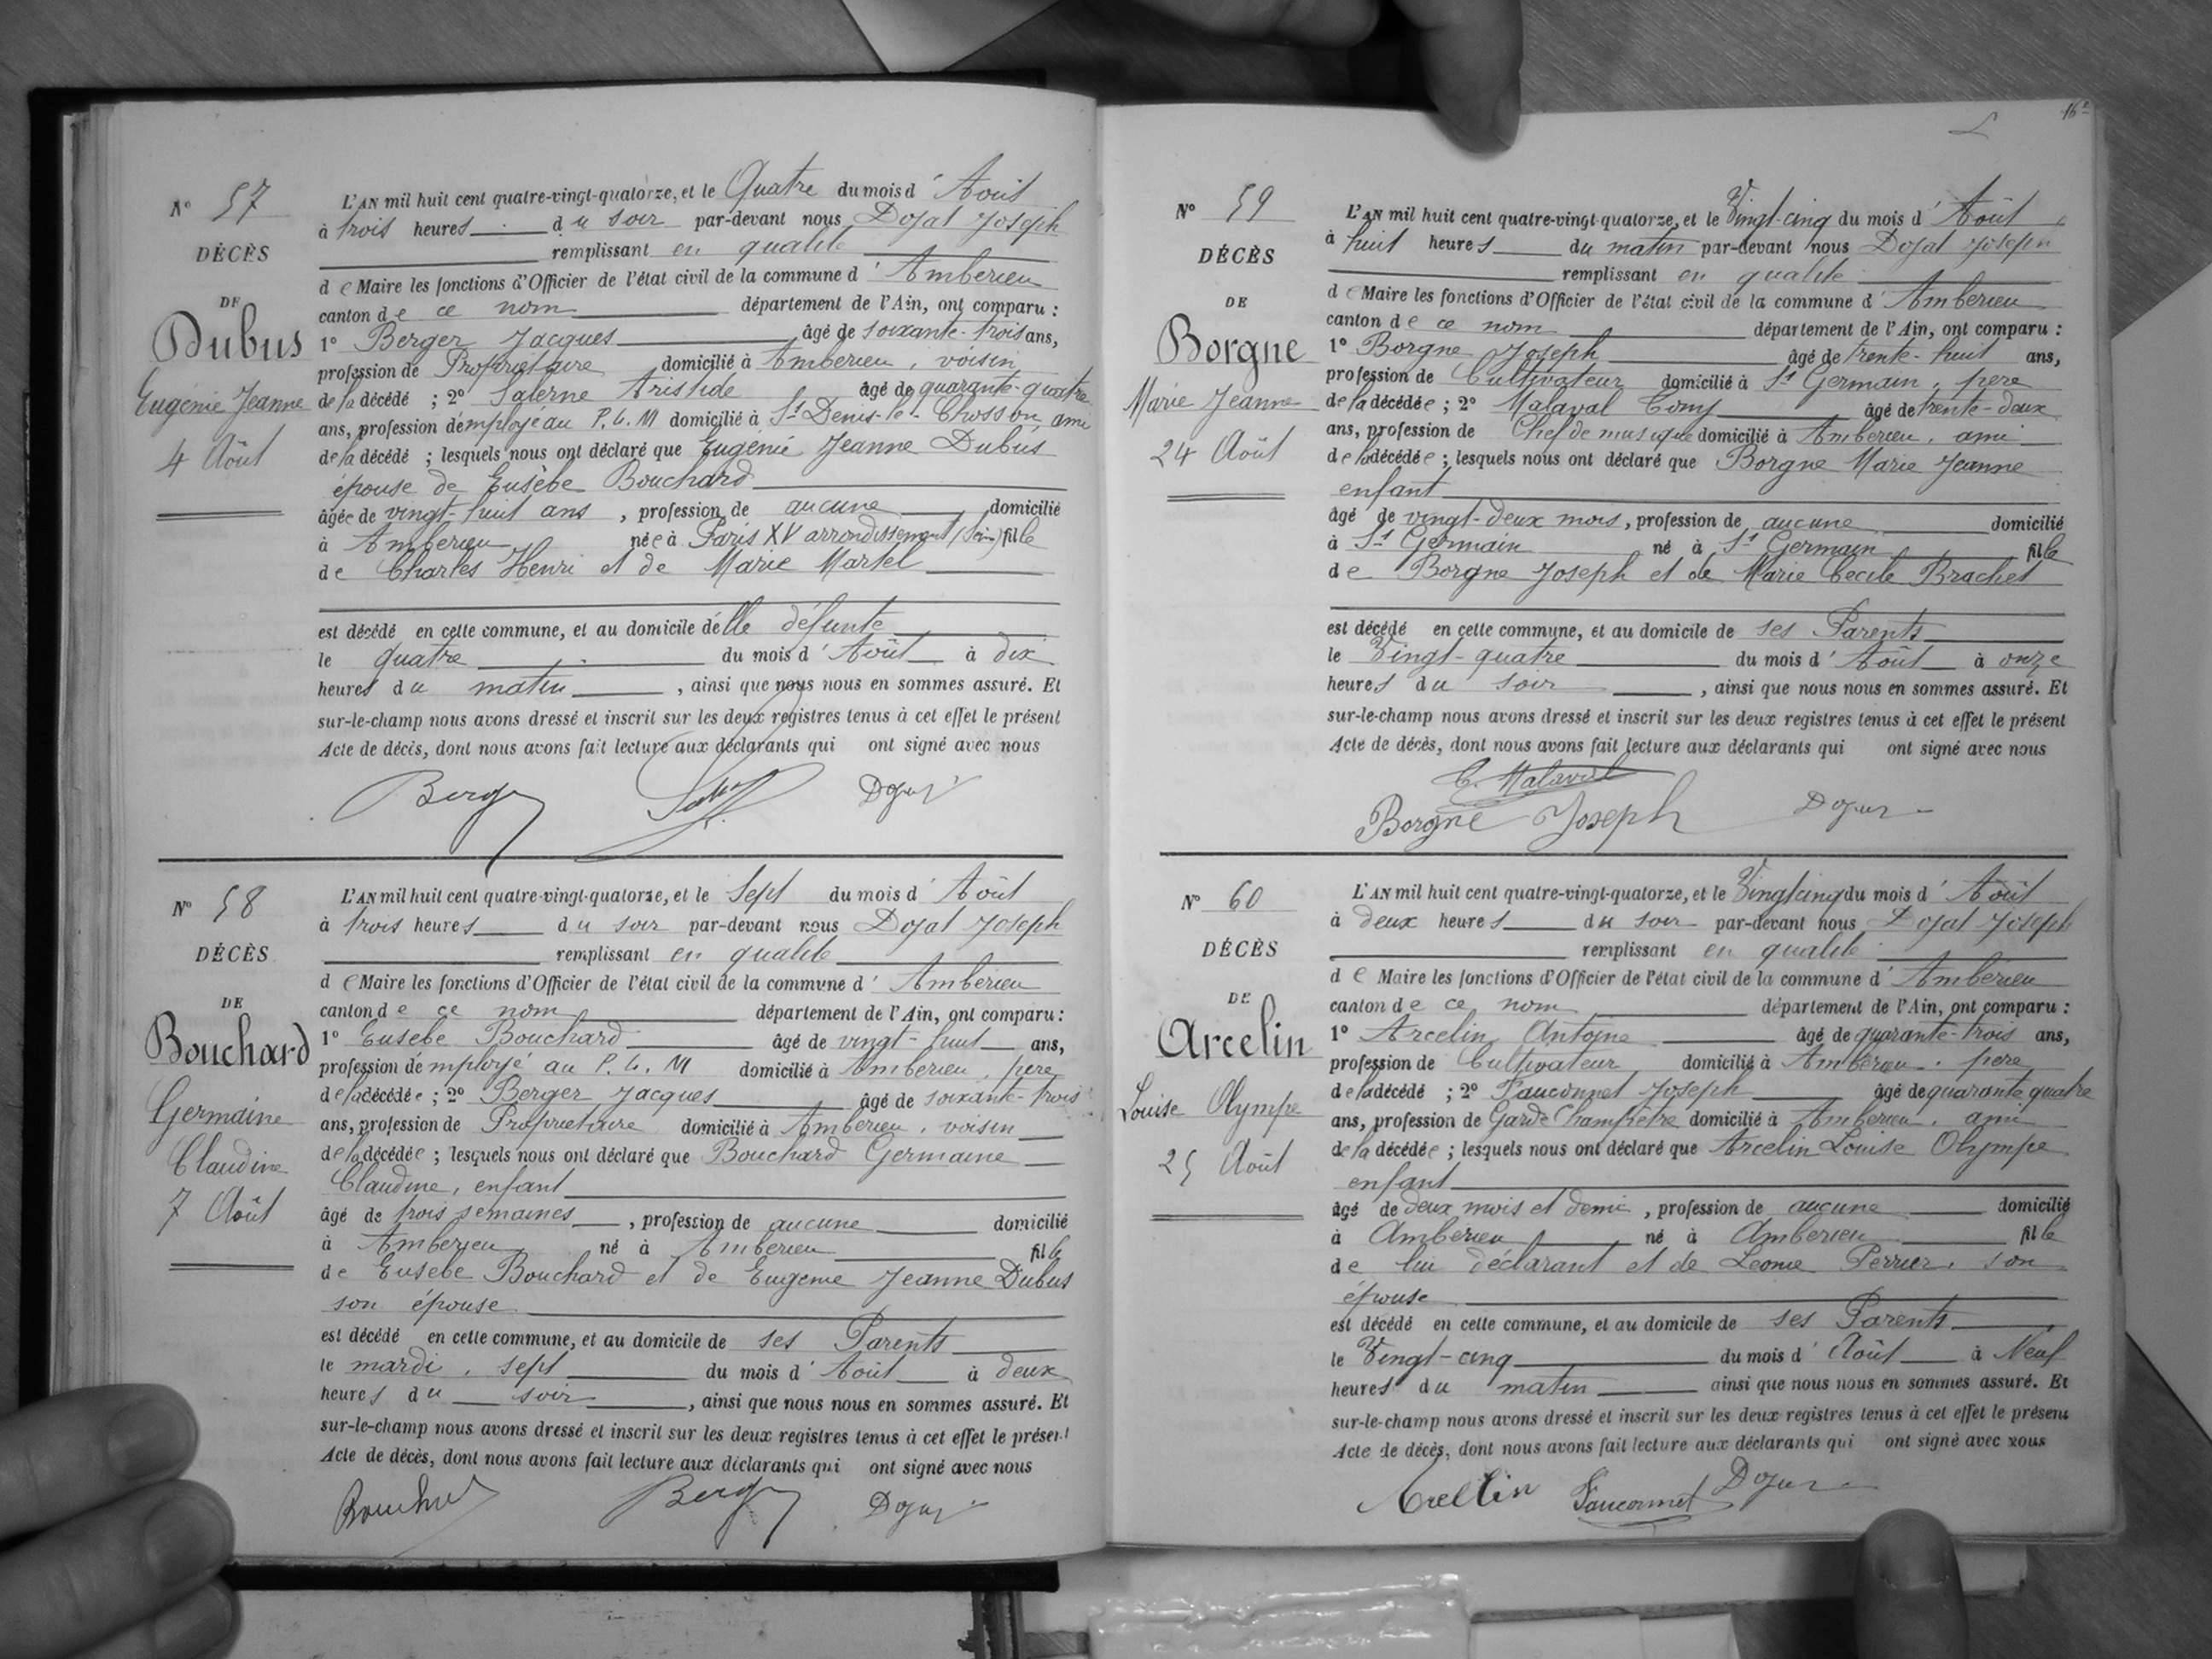 Nº 57
DÉCÈS
DE
Dubus
Eugénie Jeanne
4 Août
L'AN mil huit cent quatre-vingt-quatorze, et le Quatre du mois d'Août
à trois heures du soir par-devant nous Dojat Joseph
remplissant en qualité
de Maire les fonctions d'Officier de l'état civil de la commune d'Amberieu
canton de ce nom département de l'Ain, ont comparu :
1º Berger Jacques âgé de soixante-trois ans,
profession de Propriétaire domicilié à Amberieu, voisin
de la décédé ; 2º Salerne Aristide âgé de quarante-quatre
ans, profession d'employé au P. L. M domicilié à St Denis-le-Chosson ami
de la décédé ; lesquels nous ont déclaré que Eugénie Jeanne Dubus
épouse de Eusèbe Bouchard
âgée de vingt-huit ans , profession de aucune domicilié
à Amberieu née à Paris XV arrondissement (Seine) fille
de Charles Henri et de Marie Martel
est décédé en cette commune, et au domicile d'elle défunte
le quatre du mois d'Août à dix
heures du matin , ainsi que nous nous en sommes assuré. Et
sur-le-champ nous avons dressé et inscrit sur les deux registres tenus à cet effet le présent
Acte de décès, dont nous avons fait lecture aux déclarants qui ont signé avec nous
Berger
Nº 58
DÉCÈS
DE
Bouchard
Germaine
Claudine
7 Août
L'AN mil huit cent quatre-vingt-quatorze, et le Sept du mois d'Août
à trois heures du soir par-devant nous Dojat Joseph
remplissant en qualité
de Maire les fonctions d'Officier de l'état civil de la commune d'Amberieu
canton de ce nom département de l'Ain, ont comparu :
1º Eusèbe Bouchard âgé de vingt-huit ans,
profession d'employé au P. L. M domicilié à Amberieu, père
de la décédée ; 2º Berger Jacques âgé de soixante-trois
ans, profession de Propriétaire domicilié à Amberieu, voisin
de la décédée ; lesquels nous ont déclaré que Bouchard Germaine
Claudine, enfant
âgé de trois semaines , profession de aucune domicilié
à Amberieu né à Amberieu fille
de Eusèbe Bouchard et de Eugenie Jeanne Dubus
son épouse
est décédé en cette commune, et au domicile de ses Parents
le mardi, sept du mois d'Août à deux
heures du soir , ainsi que nous nous en sommes assuré. Et
sur-le-champ nous avons dressé et inscrit sur les deux registres tenus à cet effet le présent
Acte de décès, dont nous avons fait lecture aux déclarants qui ont signé avec nous
Bouchard Berger
Nº 59
DÉCÈS
DE
Borgne
Marie Jeanne
24 Août
L'AN mil huit cent quatre-vingt-quatorze, et le Vingt-cinq du mois d'Août
à huit heures du matin par-devant nous Dojat Joseph
remplissant en qualité
de Maire les fonctions d'Officier de l'état civil de la commune d'Amberieu
canton de ce nom département de l'Ain, ont comparu :
1º Borgne Joseph âgé de trente-huit ans,
profession de Cultivateur domicilié à St Germain, père
de la décédée ; 2º Malaval Tony âgé de trente-deux
ans, profession de Chef de musique domicilié à Amberieu, ami
de la décédée ; lesquels nous ont déclaré que Borgne Marie Jeanne
enfant
âgé de vingt-deux mois, profession de aucune domicilié
à St Germain né à St Germain fille
de Borgne Joseph et de Marie Cecile Brachet
est décédé en cette commune, et au domicile de ses Parents
le Vingt-quatre du mois d'Août à onze
heures du soir , ainsi que nous nous en sommes assuré. Et
sur-le-champ nous avons dressé et inscrit sur les deux registres tenus à cet effet le présent
Acte de décès, dont nous avons fait lecture aux déclarants qui ont signé avec nous
Malaval
Borgne Joseph
Nº 60
DÉCÈS
DE
Arcelin
Louise Olympe
25 Août
L'AN mil huit cent quatre-vingt-quatorze, et le Vingt cinq du mois d'Août
à deux heures du soir par-devant nous Dojat Joseph
remplissant en qualité
de Maire les fonctions d'Officier de l'état civil de la commune d'Amberieu
canton de ce nom département de l'Ain, ont comparu :
1º Arcelin Antoine âgé de quarante-trois ans,
profession de Cultivateur domicilié à Amberieu, père
de la décédé ; 2º Fauconnet Joseph âgé de quarante quatre
ans, profession de Garde Champêtre domicilié à Amberieu, ami
de la décédée ; lesquels nous ont déclaré que Arcelin Louise Olympe
enfant
âgé de deux mois et demi , profession de aucune domicilié
à Amberieu né à Amberieu fille
de lui déclarant et de Leonie Perrier, son
épouse
est décédé en cette commune, et au domicile de ses Parents
le Vingt-cinq du mois d'Août à Neuf
heures du matin ainsi que nous nous en sommes assuré. Et
sur-le-champ nous avons dressé et inscrit sur les deux registres tenus à cet effet le présent
Acte de décès, dont nous avons fait lecture aux déclarants qui ont signé avec nous
Arcelin Fauconnet